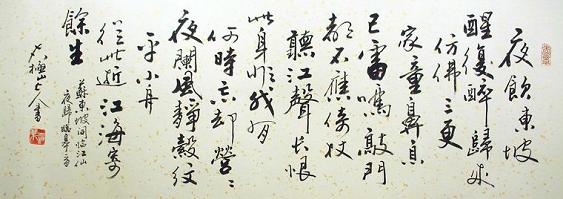 夜飲東坡
醒復醉歸來
仿佛三更
家童鼻息
已雷鳴敲門
都不應倚杖
聽江聲長恨
此身非我有
何時忘却營々
夜闌風靜縠紋
平小舟
從此逝江海寄
餘生
蘇東坡詞臨江仙
夜歸臨皋